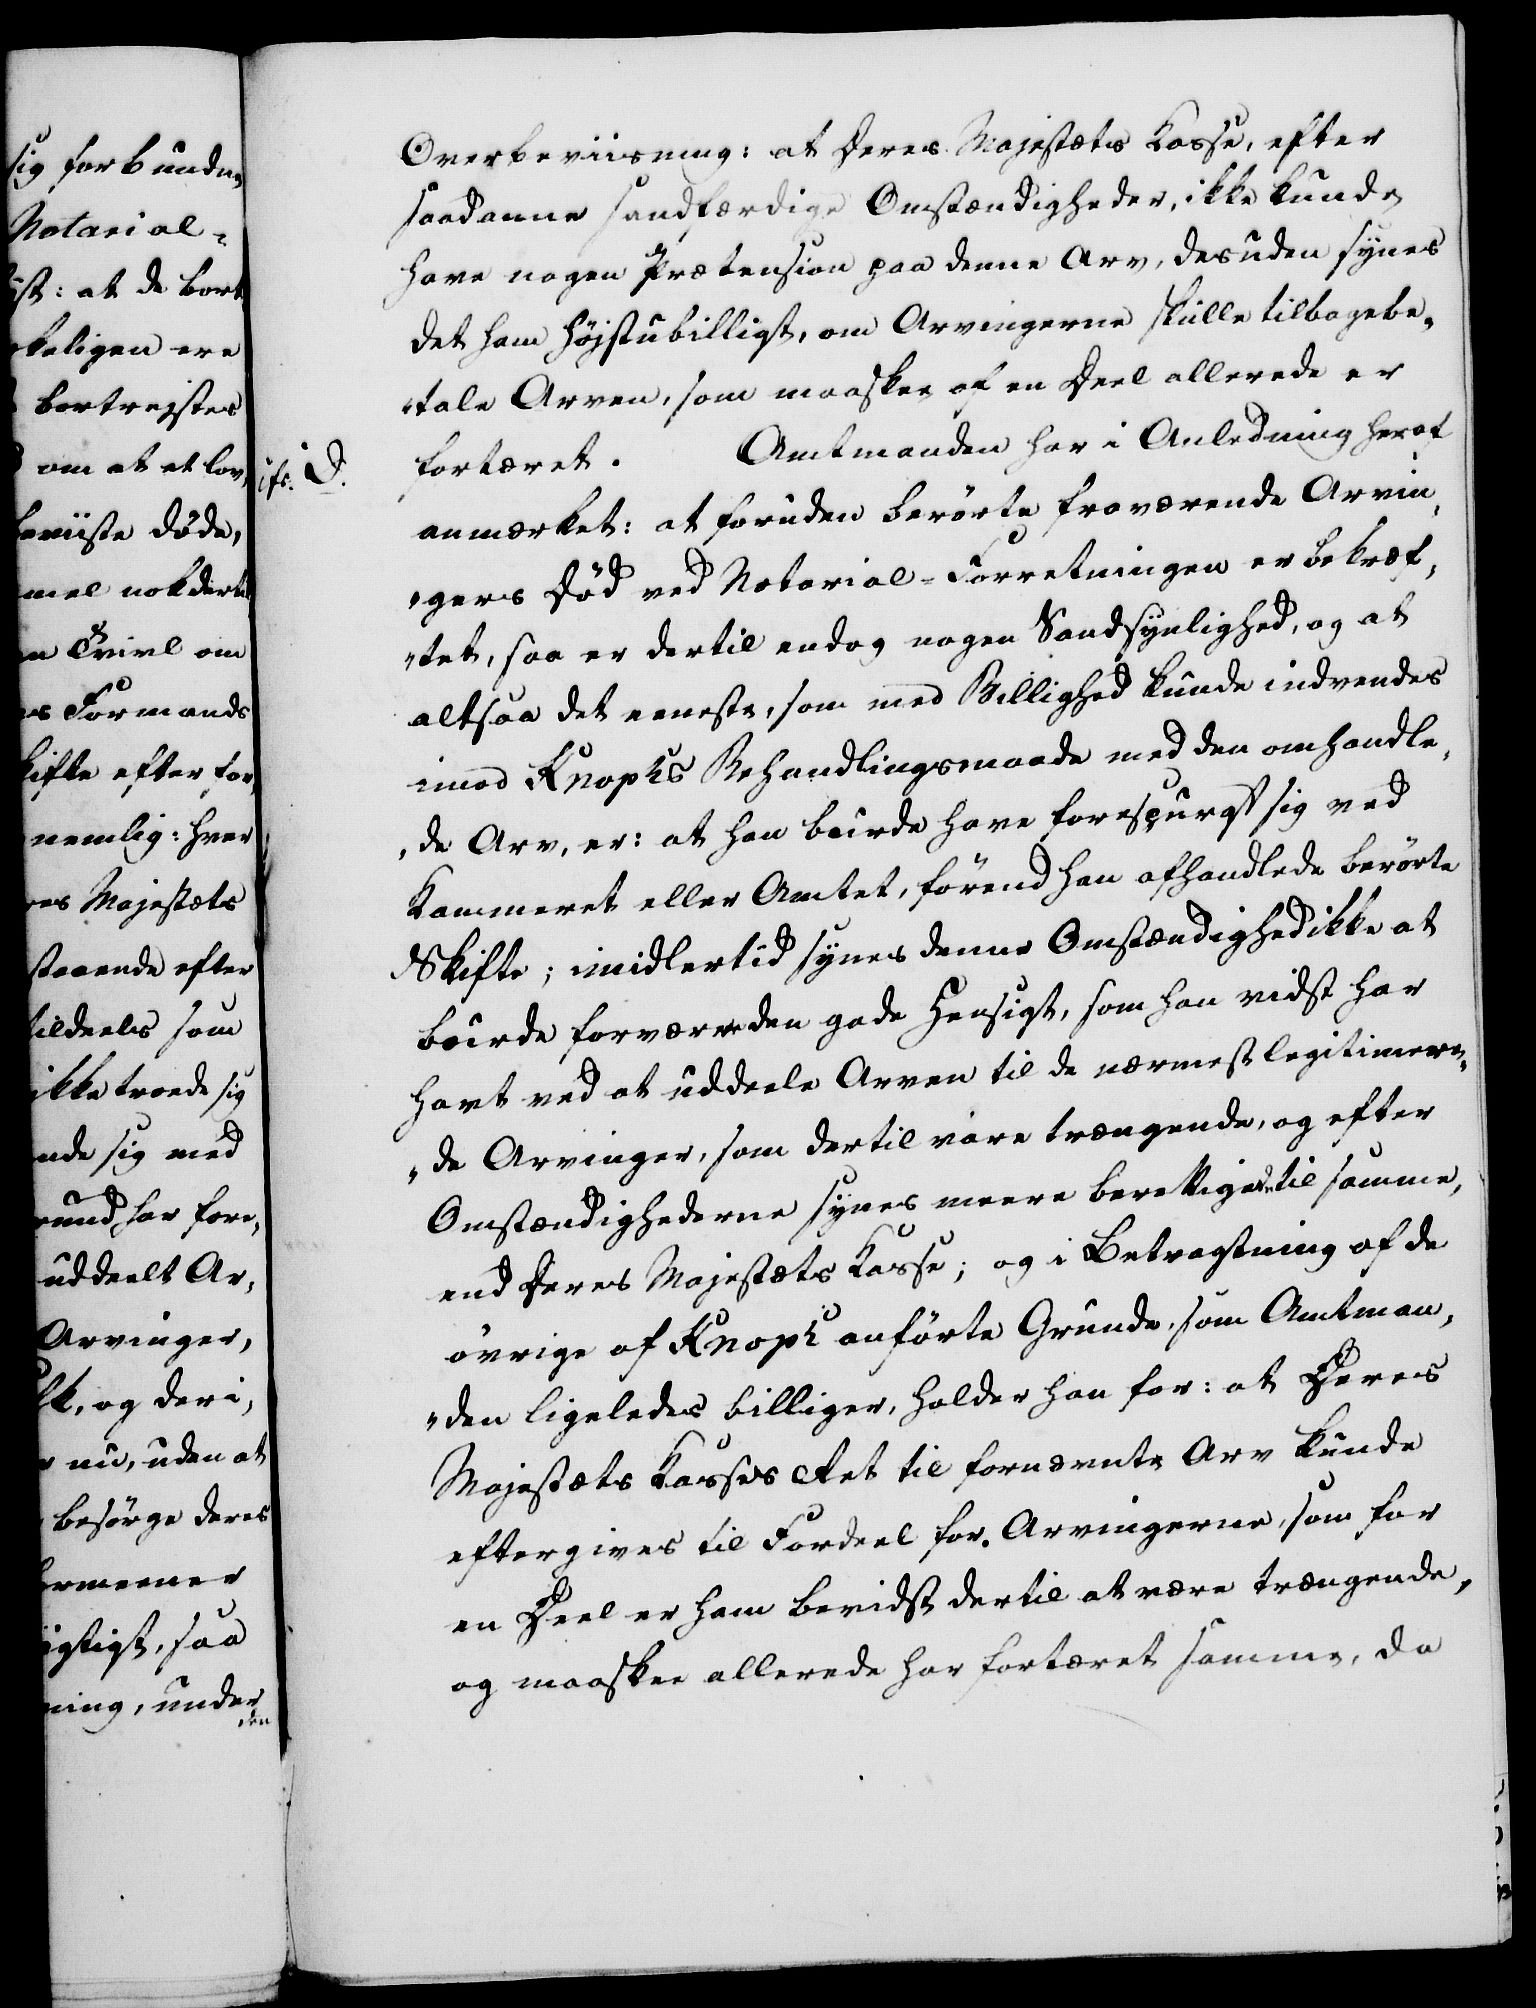 sig forbundne
Notarial-
st: at de bort
keligen ere
bortrejstes
om at et lov,
beviiste döde,
mel nok dertil
n Tvivl om
s Formands
kifte efter for,
nemlig: hver
res Majestæts
staaende efter
tildeels som
ikke troede sig
nde sig med
rund har fore,
uddeelt Ar,
Arvinger,
lk, og deri,
nu, uden at
besörge deres
ormeener
igtigst, saa
ning, under
den
Overbeviisning: at Deres Majestæts Kasse, efter
saadanne sandfærdige Omstændigheder, ikke kunde
have nogen Prætension paa denne Arv, desuden synes
det ham höjstubilligt, om Arvingerne skulle tilbagebe„
„tale Arven, som maaskee af en Deel allerede er
cfr. D. fortæret. Amtmanden har i Anledning heraf
anmærket: at foruden berörte fraværende Arvin„
„gers Död ved Notarial-Forretningen er bekræf„
„tet, saa er dertil endog nogen Sandsynlighed, og at
altsaa det eeneste, som med Billighed kunde indvendes
imod Knophs Behandlingsmaade med den omhandle„
„de Arv, er: at han burde have forespurgt sig ved
Kammeret eller Amtet, förend han afhandlede berörte
Skifte; imidlertid synes denne Omstændighed ikke at
burde forværre den gode Hensigt, som han vidst har
havt ved at uddeele Arven til de nærmest legitimere„
„de Arvinger, som dertil vare trængende, og efter
Omstændighederne synes meere berettigede til samme,
end Deres Majestæts Kasse; og i Betragtning af de
övrige af Knoph anförte Grunde, som Amtman„
„den ligeledes billiger, holder han for: at Deres
Majestæts Kasses Ret til fornævnte Arv kunde
eftergives til Fordeel for Arvingerne, som for
en Deel er ham bevidst dertil at være trængende,
og maaskee allerede har fortæret samme, da